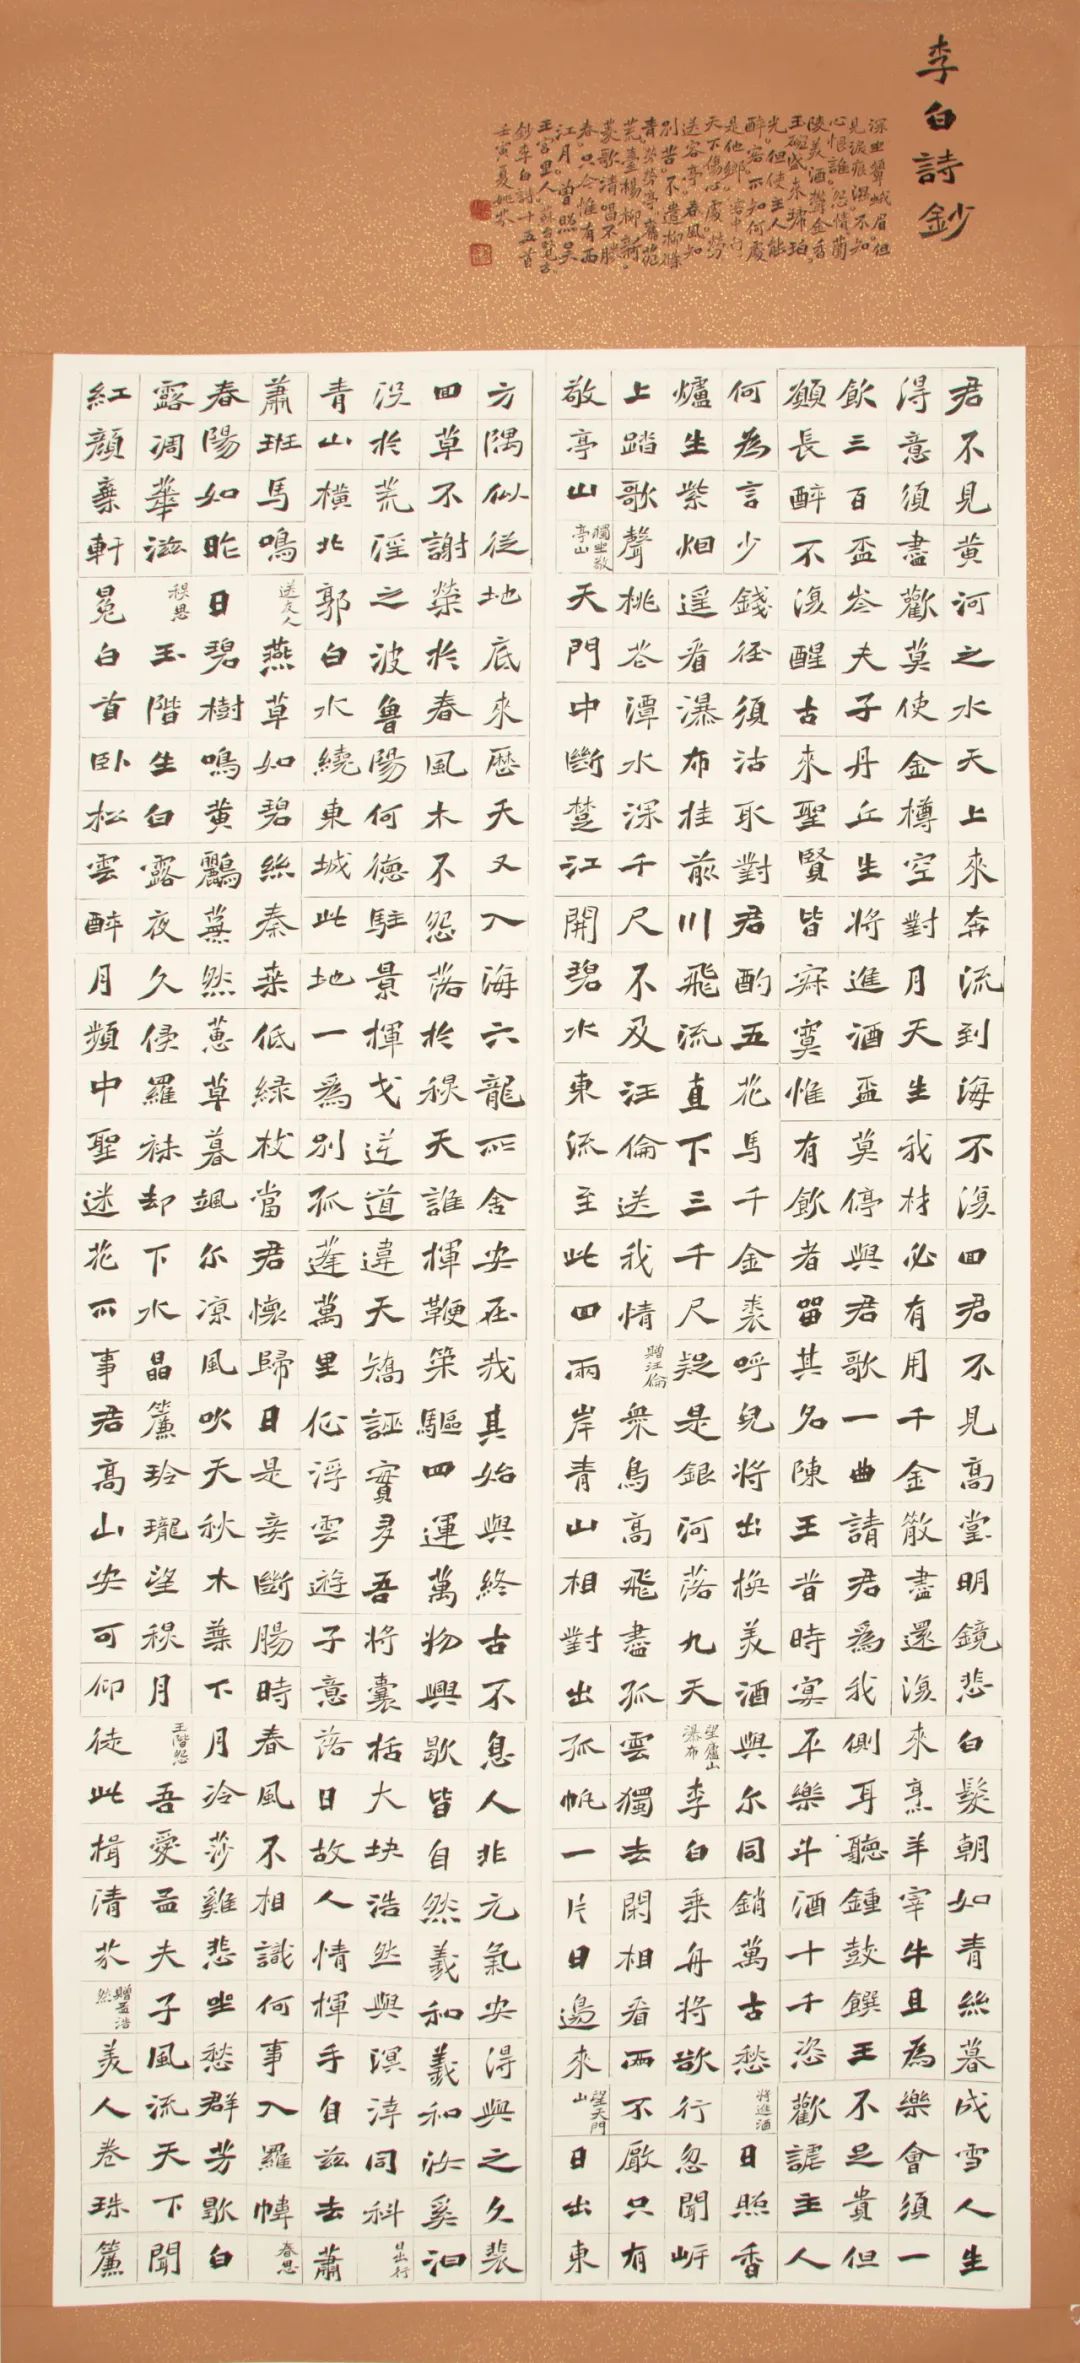 李白詩鈔
深坐顰蛾眉。但
見淚痕濕。不知
心恨誰。怨情蘭
陵美酒鬱金香。
玉碗盛來琥珀
光。但使主人能
醉客。不知何處
是他鄉。客中行
天下傷心處。勞勞
送客亭。春風知
別苦。不遣柳條
青。勞勞亭舊苑
荒臺楊柳新。
菱歌清唱不勝
春。只今惟有西
江月。曾照吳
王宮里人。蘇台覽古
鈔李白詩十五首
壬寅夏姚
君不見黃河之水天上來奔流到海不復回君不見高堂明鏡悲白髮朝如青絲暮成雪人生
得意須盡歡莫使金樽空對月天生我材必有用千金散盡還復來烹羊宰牛且為樂會須一
飲三百盃岑夫子丹丘生將進酒盃莫停與君歌一曲請君為我側耳聽鍾鼓饌玉不足貴但
願長醉不復醒古來聖賢皆寂寞惟有飲者留其名陳王昔時宴平樂斗酒十千恣歡謔主人
何為言少錢徑須沽取對君酌五花馬千金裘呼兒將出換美酒與尔同銷萬古愁將進酒日照香
爐生紫烟遥看瀑布挂前川飛流直下三千尺疑是銀河落九天望廬山瀑布李白乘舟將欲行忽聞岸
上踏歌聲桃花潭水深千尺不及汪倫送我情贈汪倫衆鳥高飛盡孤雲獨去閑相看兩不厭只有
敬亭山獨坐敬亭山天門中斷楚江開碧水東流至此回兩岸青山相對出孤帆一片日邊來望天門山日出東
方隅似從地底來歷天又入海六龍所舍安在哉其始與終古不息人非元氣安得與之久裴
回草不謝榮於春風木不怨落於秋天誰揮鞭策驅四運萬物興歇皆自然羲和羲和汝奚汩
没於荒淫之波魯陽何德駐景揮戈逆道違天矯誣實多吾將囊括大塊浩然與溟涬同科日出行
青山橫北郭白水繞東城此地一為別孤蓬萬里征浮雲遊子意落日故人情揮手自兹去蕭
蕭班馬鳴送友人燕草如碧絲秦桑低綠枝當君懷歸日是妾斷腸時春風不相識何事入羅幃春思
春陽如昨日碧樹鳴黃鸝蕪然蕙草暮颯尔涼風吹天秋木葉下月冷莎雞悲坐愁群芳歇白
露凋華滋秋思玉階生白露夜久侵羅襪却下水晶簾玲瓏望秋月玉階怨吾愛孟夫子風流天下聞
紅顏棄軒冕白首卧松雲醉月頻中聖迷花不事君高山安可仰徒此揖清芬贈孟浩然美人卷珠簾